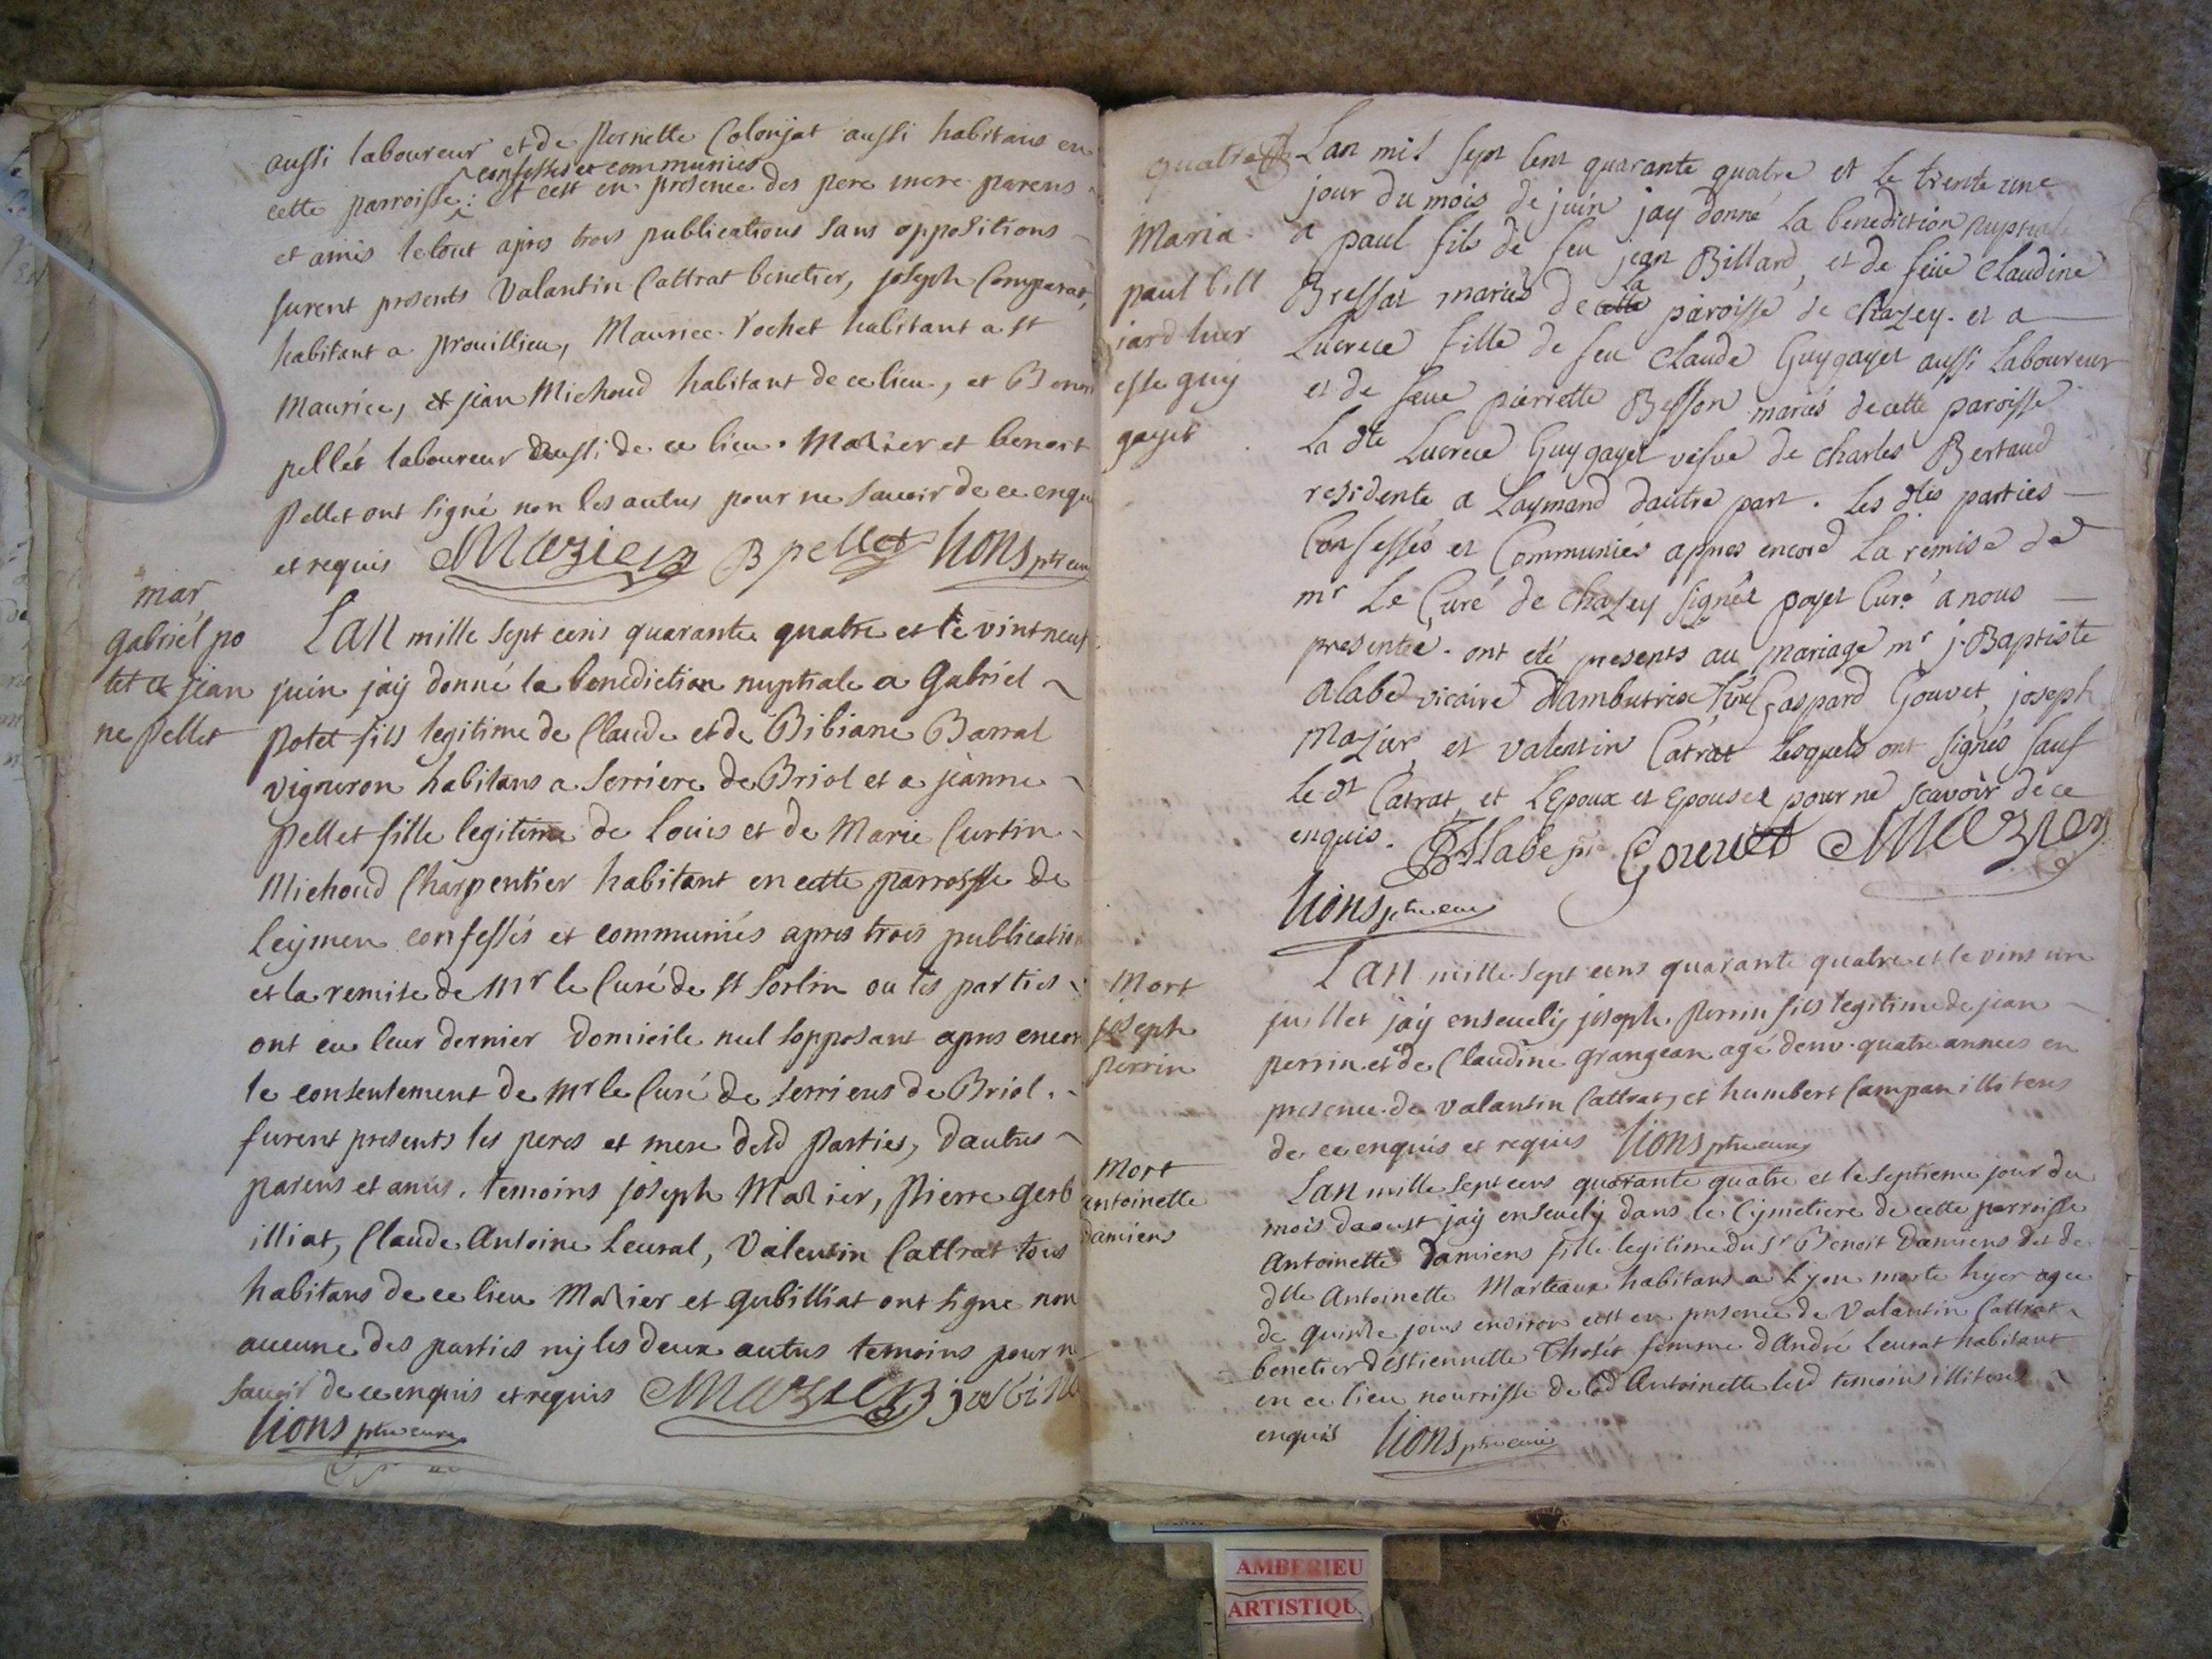 aussi laboureur et de pernette Colonjat aussi habitans en
confessés et communiés
cette parroisse : et cest en presence des pere mere parens
et amis le tout apres trois publications sans oppositions
furent presents Valantin Cattrat benetier, joseph Comparat,
habitant a prouillieu, Maurice Pochet habitant a st
Maurice, et jean Michoud habitant de ce lieu, et Benoit
pellet laboureur aussi de ce lieu. Mazier et benoit
Pellet ont signé non les autres pour ne sauoir de ce enquis
et requis Mazier B pellet Lions ptre curé
mar
gabriel po
tet a jean
ne pellet
Lan mille sept cens quarante quatre et le vint neuf
juin jaÿ donné la benediction nuptiale a Gabriel
Potet fils legitime de Claude et de Bibiane Barral
vigneron habitans a Serriere de Briol et a jeanne
Pellet fille legitime de Louis et de Marie Curtin
Michoud Charpentier habitant en cette parroisse de
Leÿmen confessés et communiés apres trois publication
et la remise de Mr le Curé de st Sorlin ou les parties
ont eu leur dernier domicile nul sopposant apres encor
le consentement de Mr le Curé de Serrieres de Briol.
furent presents les peres et mere desd parties, dautres
parens et amis. temoins joseph Mazier, Pierre gerb
illiat, Claude Antoine Leurat, Valentin Cattrat tous
habitans de ce lieu Mazier et gerbilliat ont signe non
aucune des parties nÿ les deux autres temoins pour n
sauoir de ce enquis et requis Mazier
Lions ptre curé
quatre
Maria
paul bill
iard lucr
esse guÿ
gayet
Lan mil sept cent quarante quatre et le trente une
jour du mois de juin jay donné la benediction nuptiale
a paul fils de feu jean Billard, et de feüe Claudine
la
Bressat mariés de cette paroisse de chazey. et a
Lucrece fille de feu Claude Guygayet aussi Laboureur
et de feue pierrette Besson mariés de cette paroisse
La dte Lucrece Guygayet vefve de charles Bertaud
residente a Laymand dautre part. Les dtes parties
Confessés et Communiés appres encore La remise de
mr Le Curé de chazey signée poyet Curé a nous
presentée. ont eté presents au mariage mr j. Baptiste
alabe vicaire dambutrix Gaspard Gouvet, joseph
Mazier, et valentin Catrat Lesquels ont signés sauf
Le dt Catrat, et Lepoux et Epousee pour ne scavoir de ce
enquis. Alabe Gouvet Mazier
Lions ptre curé
Mort
joseph
perrin
Lan mille sept cens quarante quatre et le vint un
juillet jaÿ enseuelÿ joseph Perrin fils legitime de jean
perrin et de Claudine grangean agé denv. quatre années en
presence de valantin Cattrat, et humbert Campan illiteres
de ce enquis et requis Lions ptre curé
Mort
antoinette
damiens
Lan mille sept cens quarante quatre et le septieme jour du
mois daoust jaÿ enseuelÿ dans le Cÿmetiere de cette parroisse
Antoinette Damiens fille legitime du sr Benoit Damiens et de
dlle Antoinette Marteaux habitans a Lÿon morte hyer agee
de quinze jours environ cest en presence de Valantin Cattrat
benetier destiennette Thoset femme dAndré Leurat habitant
en ce lieu nourrisse de lad Antoinette lesd temoins illiteres
enquis Lions ptre curé
AMBERIEU
ARTISTIQU